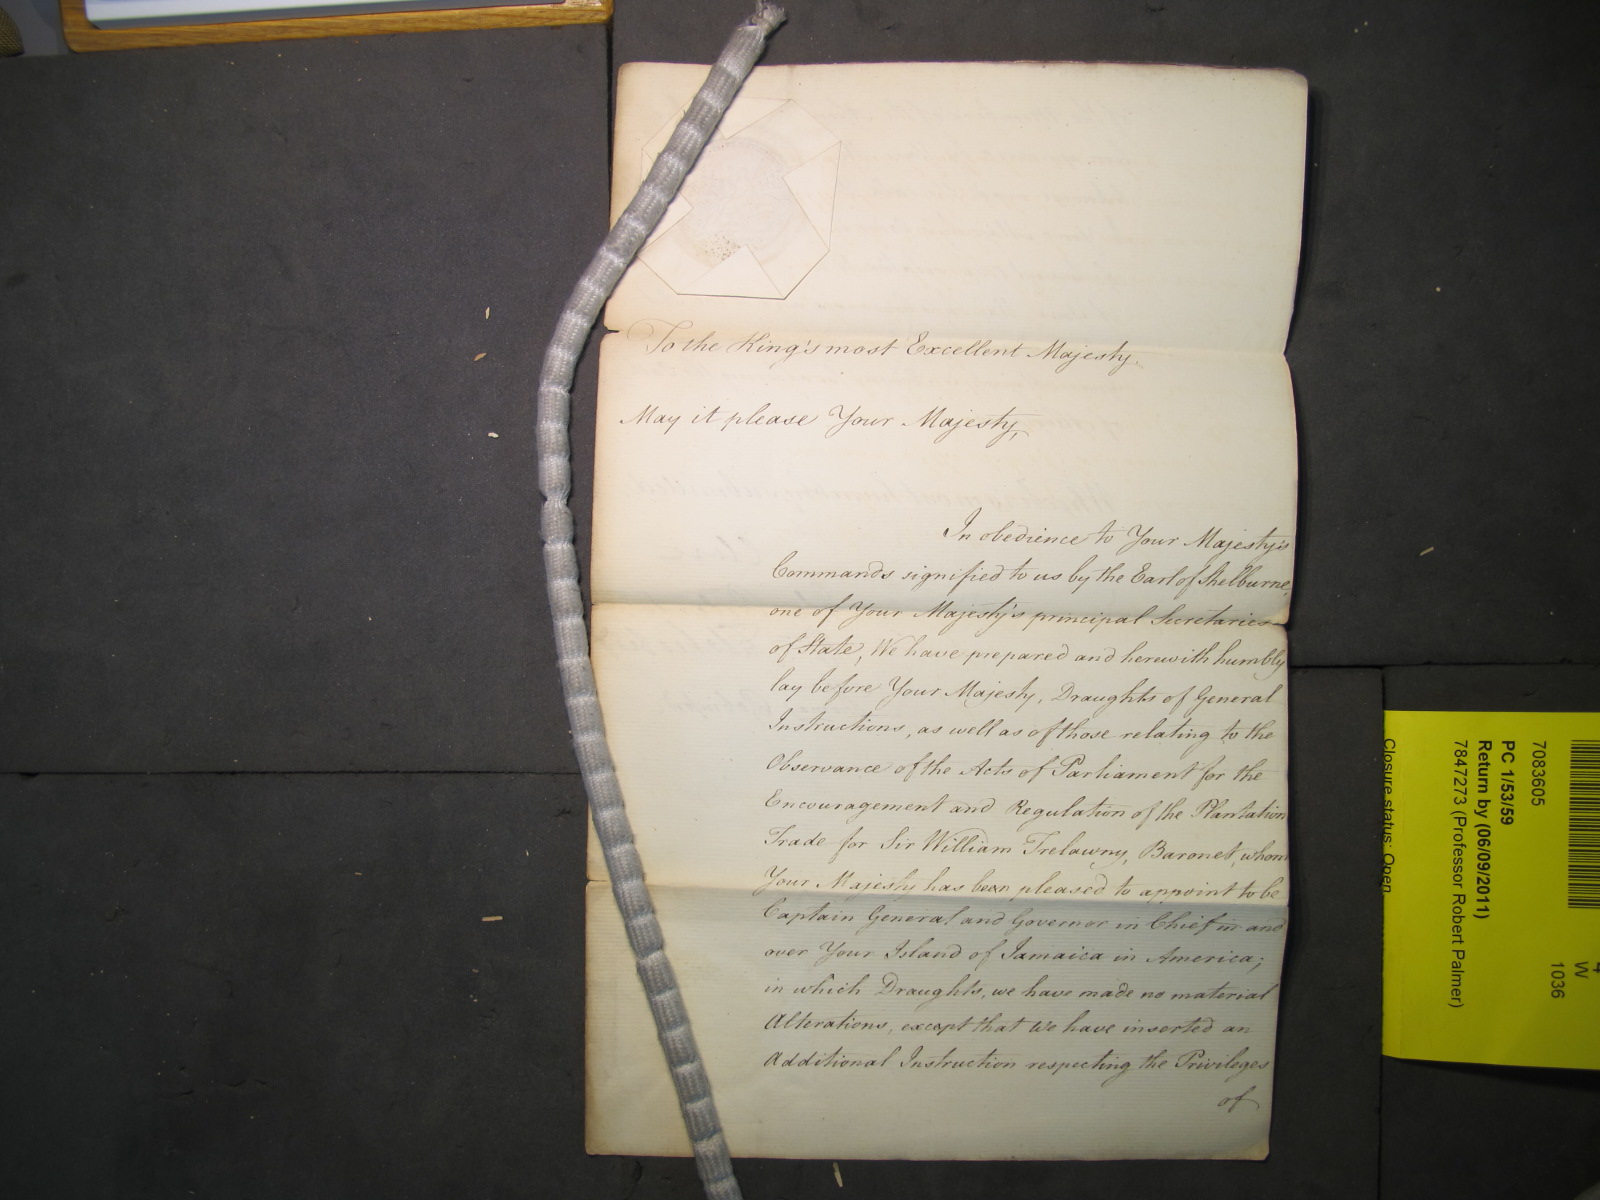 To the King's most Excellent Majesty.
May it please Your Majesty,
In obedience to Your Majesty's
Commands signified to us by the Earl of Shelburne,
one of Your Majesty's principal Secretaries
of State, We have prepared and herewith humbly
lay before Your Majesty, Draughts of General
Instructions, as well as of those relating to the
Observance of the Acts of Parliament for the
Encouragement and Regulation of the Plantation
Trade for Sir William Trelawny, Baronet, whom
Your Majesty has been pleased to appoint to be
Captain General and Governor in Chief in and
over Your Island of Jamaica in America;
in which Draughts, we have made no material
Alterations, except that we have inserted an
Additional Instruction respecting the Privileges
of
7083605
PC 1/53/59
Return by (06/09/2011)
7847273 (Professor Robert Palmer)
Closure status: Open
W
1036